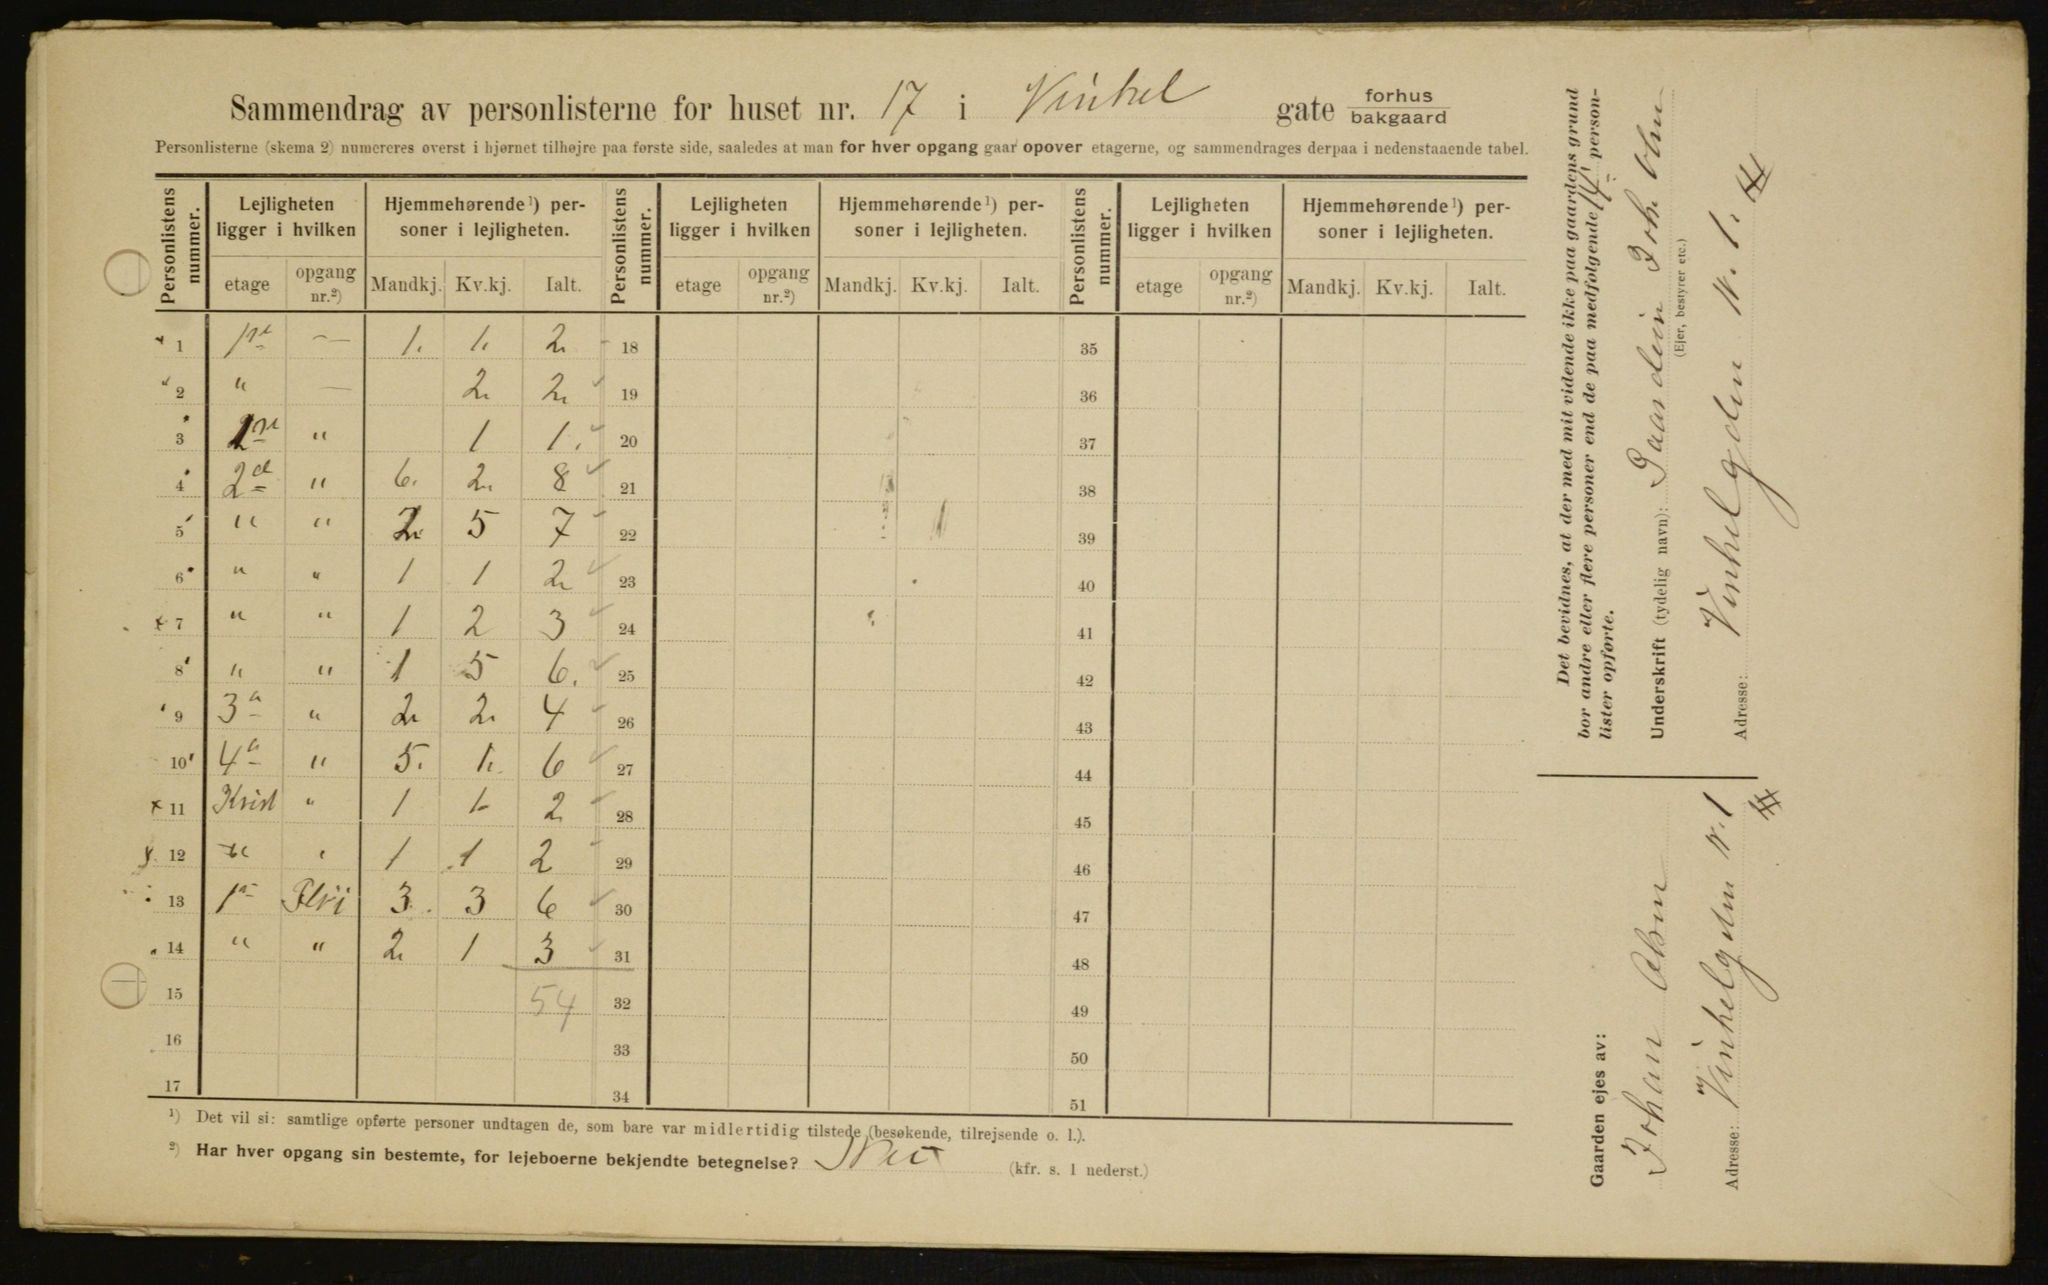 Sammendrag av personlisterne for huset nr. 17 i Vinkel gate forhus bakgaard
Personlisterne (skema 2) numereres øverst i hjørnet tilhøjre paa første side, saaledes at man for hver opgang gaar opover etagerne, og sammendrages derpaa i nedenstaaende tabel.
Personlistens nummer. Lejligheten ligger i hvilken Hjemmehørende¹) personer i lejligheten. Personlistens nummer. Lejligheten ligger i hvilken Hjemmehørende¹) personer i lejligheten. Personlistens nummer. Lejligheten ligger i hvilken Hjemmehørende¹) personer i lejligheten.
etage opgang nr.²) Mandkj. Kv.kj. Ialt. etage opgang nr.²) Mandkj. Kv.kj. Ialt. etage opgang nr.²) Mandkj. Kv.kj. Ialt.
1 1ste — 1. 1. 2 18 35
2 " — 2 2 19 36
3 " 1 1. 20 37
4 2d " 6. 2 8 21 38
5 " " 2 5 7 22 39
6 " " 1 1 2 23 40
7 " " 1 2 3 24 41
8 " " 1 5 6. 25 42
9 3a " 2 2 4 26 43
10 4a " 5. 1. 6 27 44
11 Krist " 1 1 2 28 45
12 " 1 1 2 29 46
13 1a 3. 3 6 30 47
14 " " 2 1 3 31 48
15 54 32 49
16 33 50
17 34 51
¹) Det vil si: samtlige opførte personer undtagen de, som bare var midlertidig tilstede (besøkende, tilrejsende o. l.).
²) Har hver opgang sin bestemte, for lejeboerne bekjendte betegnelse? Nei (kfr. s. 1 nederst.)
Det bevidnes, at der med mit vidende ikke paa gaardens grund
bor andre eller flere personer end de paa medfølgende 14 person-
lister opførte.
Underskrift (tydelig navn):
(Ejer, bestyrer etc.)
Adresse: Vinkelgaden N. 1.
Gaarden ejes av: Johan
Adresse: Vinkelgaden N. 1